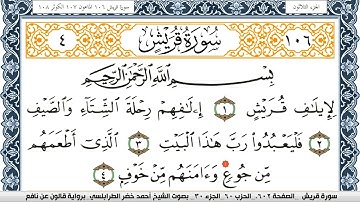 الجزء الثلاثون
سورة قريش ١٠٦ الماعون ١٠٧ الكوثر ١٠٨
٤ سُورَةُ قُرَيْشٍ ١٠٦
بِسْمِ اللَّهِ الرَّحْمَٰنِ الرَّحِيمِ
لِإِيلَٰفِ قُرَيْشٍ ١ إِۦلَٰفِهِمْ رِحْلَةَ الشِّتَآءِ وَالصَّيْفِ
٢ فَلْيَعْبُدُوا۟ رَبَّ هَٰذَا الْبَيْتِ ٣ الَّذِى أَطْعَمَهُم
مِّن جُوعٍ ۞ وَءَامَنَهُم مِّنْ خَوْفٍ ٤
سورة قريش .. الصفحة ٦٠٢ .. الحزب ٦٠ .. الجزء ٣٠ .. بصوت الشيخ أحمد خضر الطرابلسي .. برواية قالون عن نافع